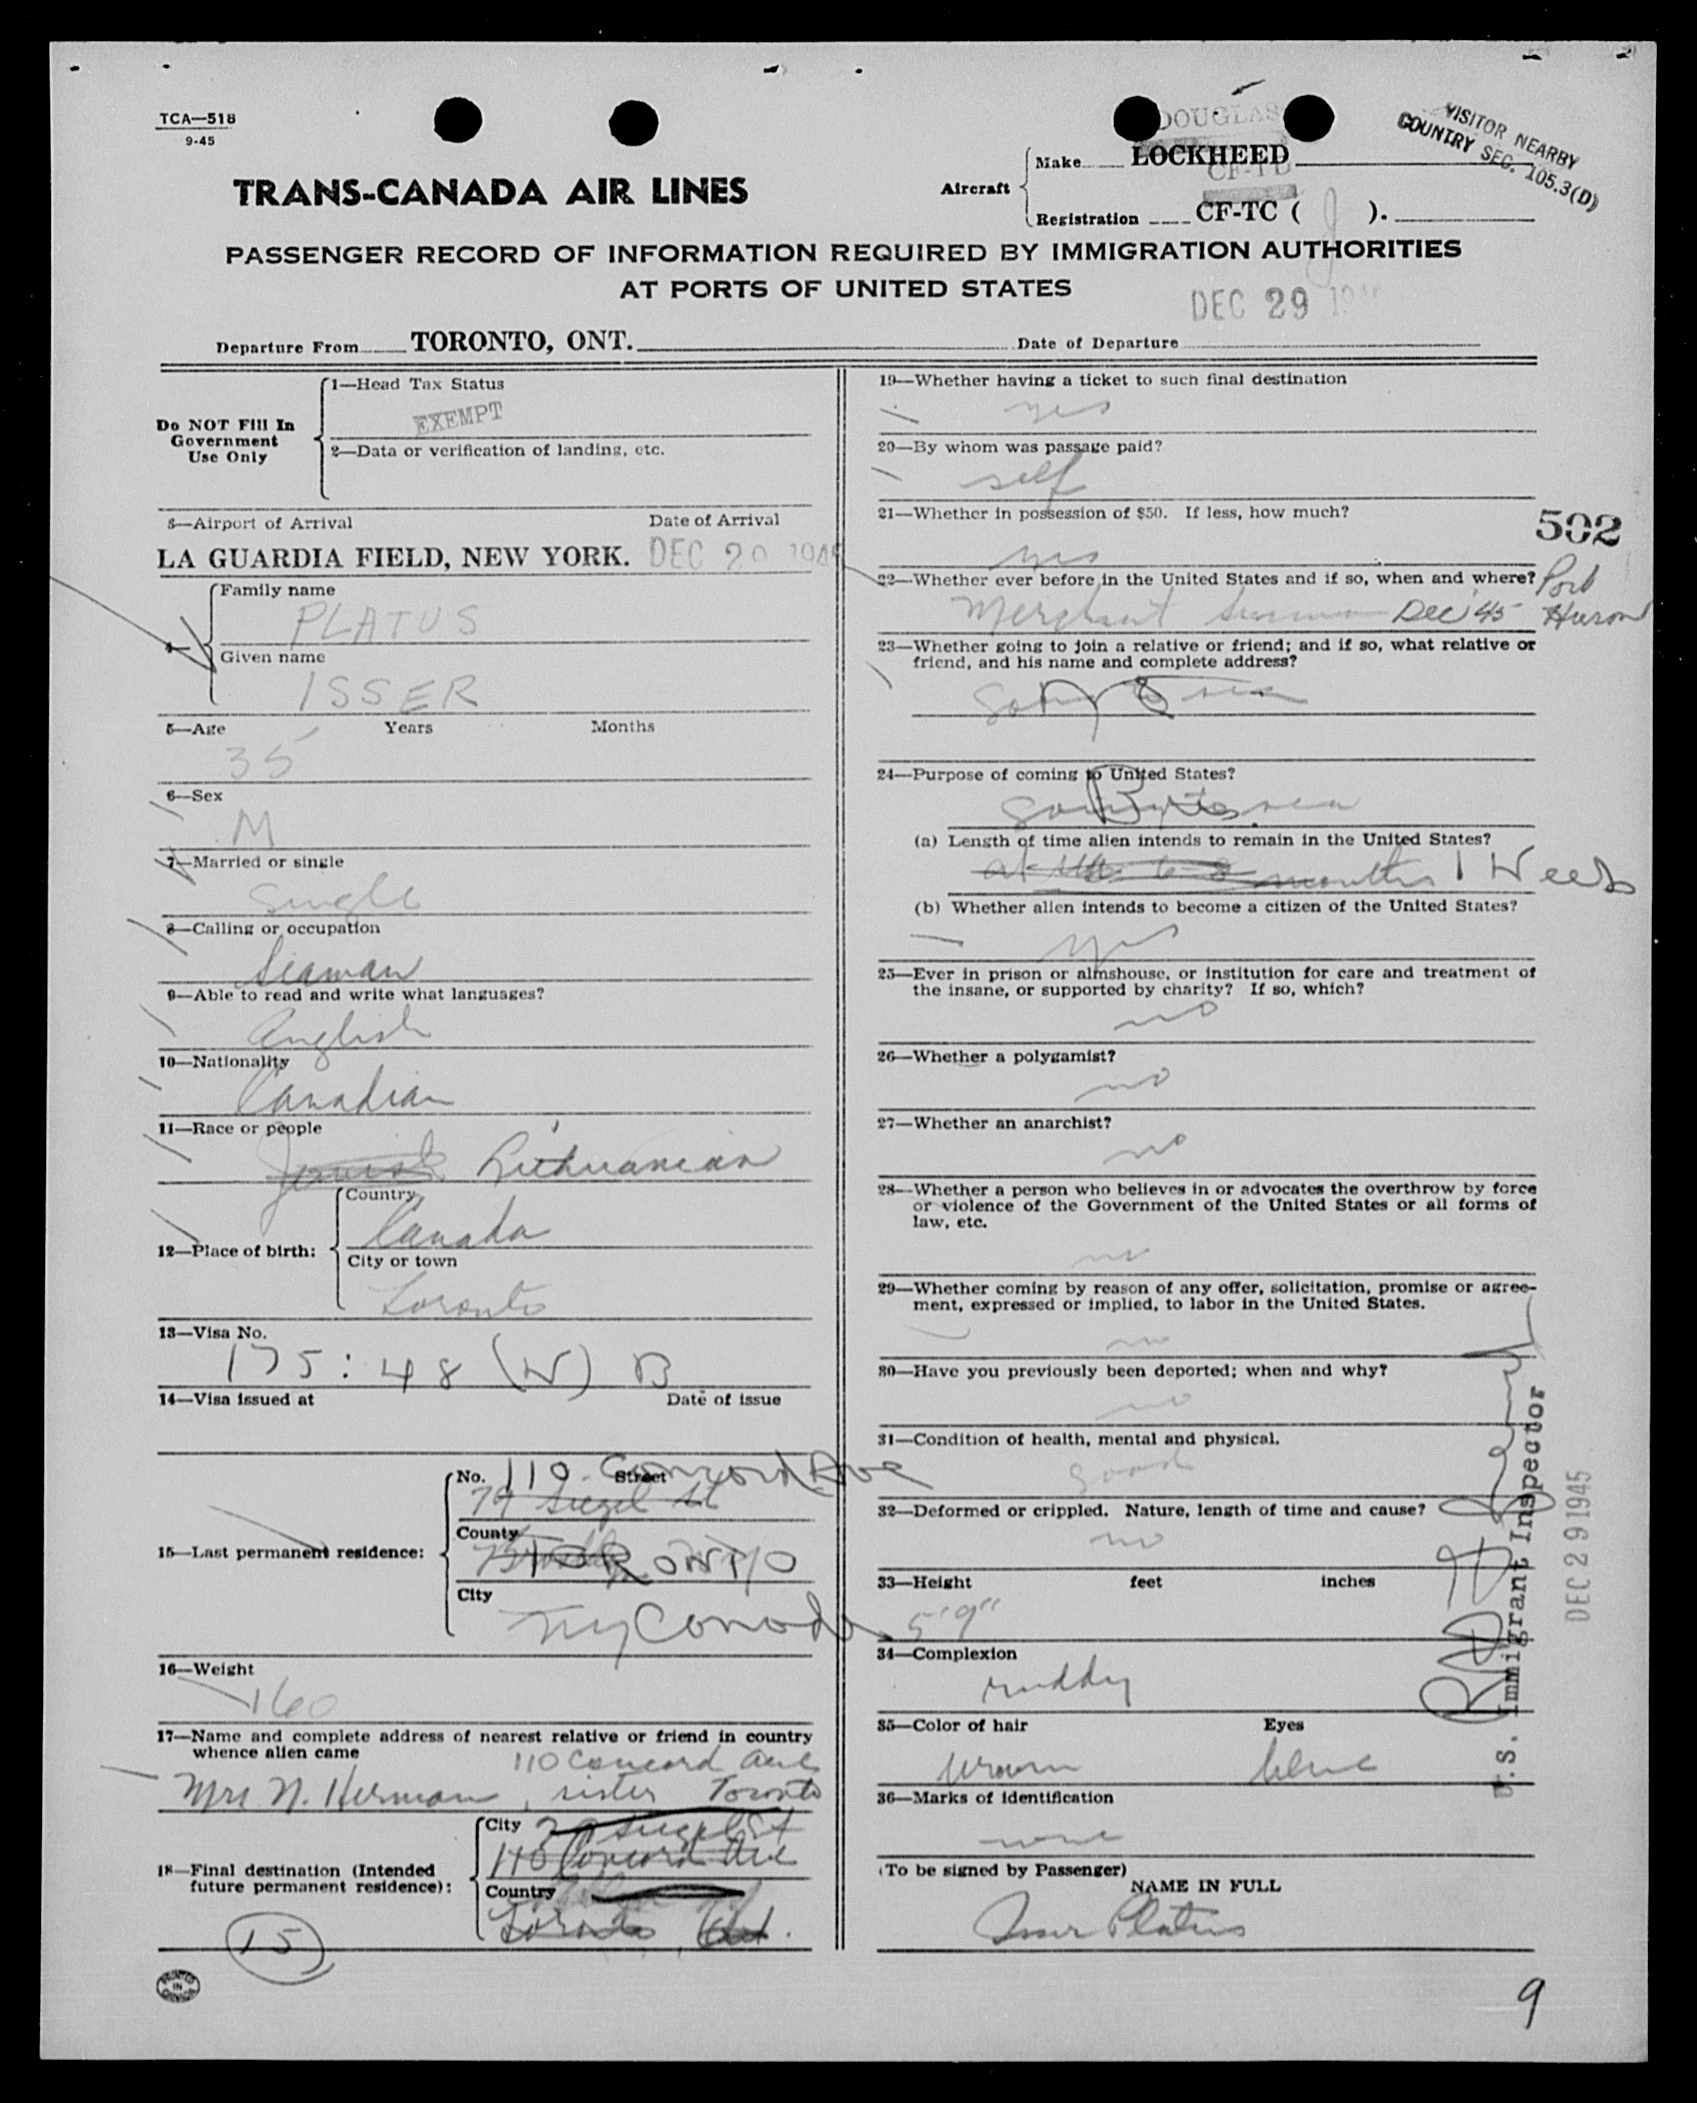 TCA—518
9-45
DOUGLAS
VISITOR NEARBY
COUNTRY SEC. 105.3(D)
Make LOCKHEED
CF-TD
TRANS-CANADA AIR LINES
Aircraft
Registration CF-TC ( J ).
PASSENGER RECORD OF INFORMATION REQUIRED BY IMMIGRATION AUTHORITIES
AT PORTS OF UNITED STATES
DEC 29
Departure From TORONTO, ONT.
Date of Departure
Do NOT Fill In
Government
Use Only
1—Head Tax Status
EXEMPT
2—Data or verification of landing, etc.
3—Airport of Arrival Date of Arrival
LA GUARDIA FIELD, NEW YORK. DEC 29 1945
4—
Family name
PLATUS
Given name
ISSER
5—Age Years Months
35
6—Sex
M
7—Married or single
Single
8—Calling or occupation
Seaman
9—Able to read and write what languages?
English
10—Nationality
Canadian
11—Race or people
Jewish Lithuanian
12—Place of birth:
Country
Canada
City or town
Toronto
13—Visa No.
175:48 (W) B
14—Visa issued at Date of issue
15—Last permanent residence:
No. Street
110 Concord Ave
79 Siegel St
County
TORONTO
City
NY Canada
16—Weight
160
17—Name and complete address of nearest relative or friend in country
whence alien came
110 Concord Ave
Mrs N. Herman, sister Toronto
18—Final destination (Intended
future permanent residence):
City
Siegel St
110 Concord Ave
Country
Toronto Ont.
15
PRINTED
IN
CANADA
19—Whether having a ticket to such final destination
yes
20—By whom was passage paid?
self
21—Whether in possession of $50. If less, how much?
yes
502
22—Whether ever before in the United States and if so, when and where?
Merchant Seaman Dec '45 Port Huron
23—Whether going to join a relative or friend; and if so, what relative or
friend, and his name and complete address?
Going to sea
24—Purpose of coming to United States?
B
Going to sea
(a) Length of time alien intends to remain in the United States?
months 1 Week
(b) Whether alien intends to become a citizen of the United States?
yes
25—Ever in prison or almshouse, or institution for care and treatment of
the insane, or supported by charity? If so, which?
no
26—Whether a polygamist?
no
27—Whether an anarchist?
no
28—Whether a person who believes in or advocates the overthrow by force
or violence of the Government of the United States or all forms of
law, etc.
no
29—Whether coming by reason of any offer, solicitation, promise or agree-
ment, expressed or implied, to labor in the United States.
no
30—Have you previously been deported; when and why?
no
31—Condition of health, mental and physical.
good
32—Deformed or crippled. Nature, length of time and cause?
no
33—Height feet inches
5'9"
34—Complexion
ruddy
35—Color of hair Eyes
brown blue
36—Marks of identification
none
(To be signed by Passenger)
NAME IN FULL
Isser Platus
U.S. Immigrant Inspector
DEC 29 1945
9